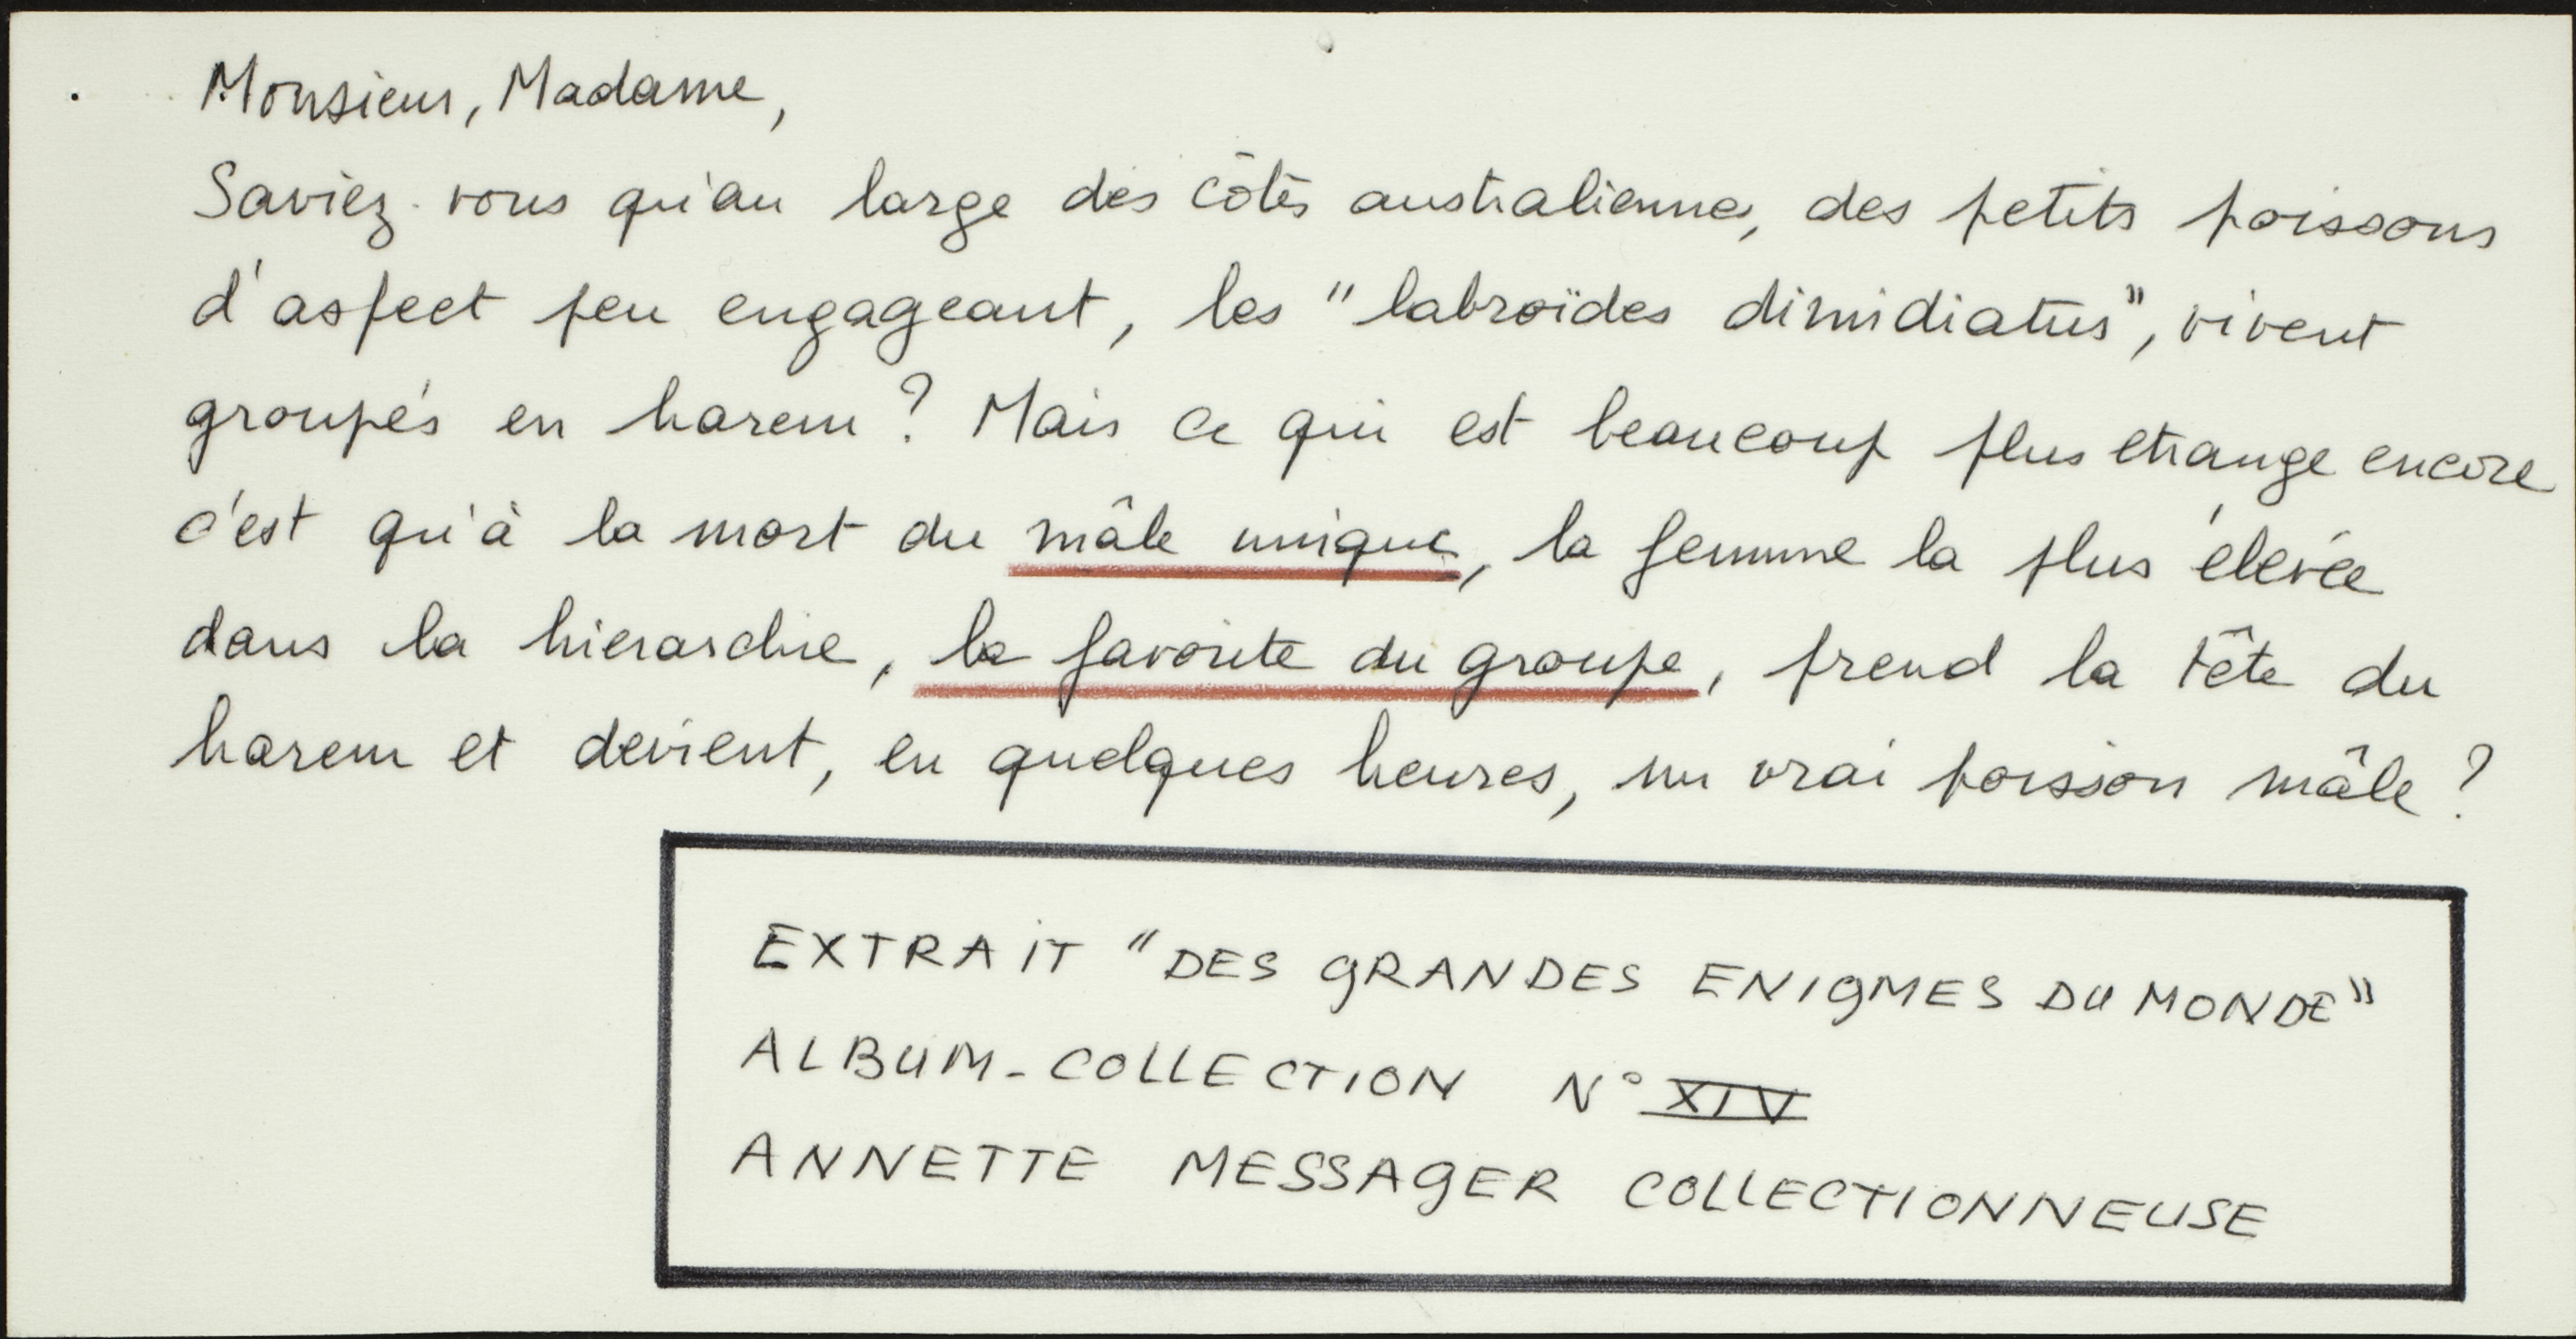 Monsieur, Madame,
Saviez-vous qu'au large des côtes australiennes, des petits poissons
d'aspect peu engageant, les "labroïdes dimidiatus", vivent
groupés en harem ? Mais ce qui est beaucoup plus etrange encore
c'est qu'à la mort du mâle unique, la femme la plus élevée
dans la hierarchie, la favorite du groupe, prend la tête du
harem et devient, en quelques heures, un vrai poisson mâle ?
EXTRAIT "DES GRANDES ENIGMES DU MONDE"
ALBUM-COLLECTION N° XIV
ANNETTE MESSAGER COLLECTIONNEUSE